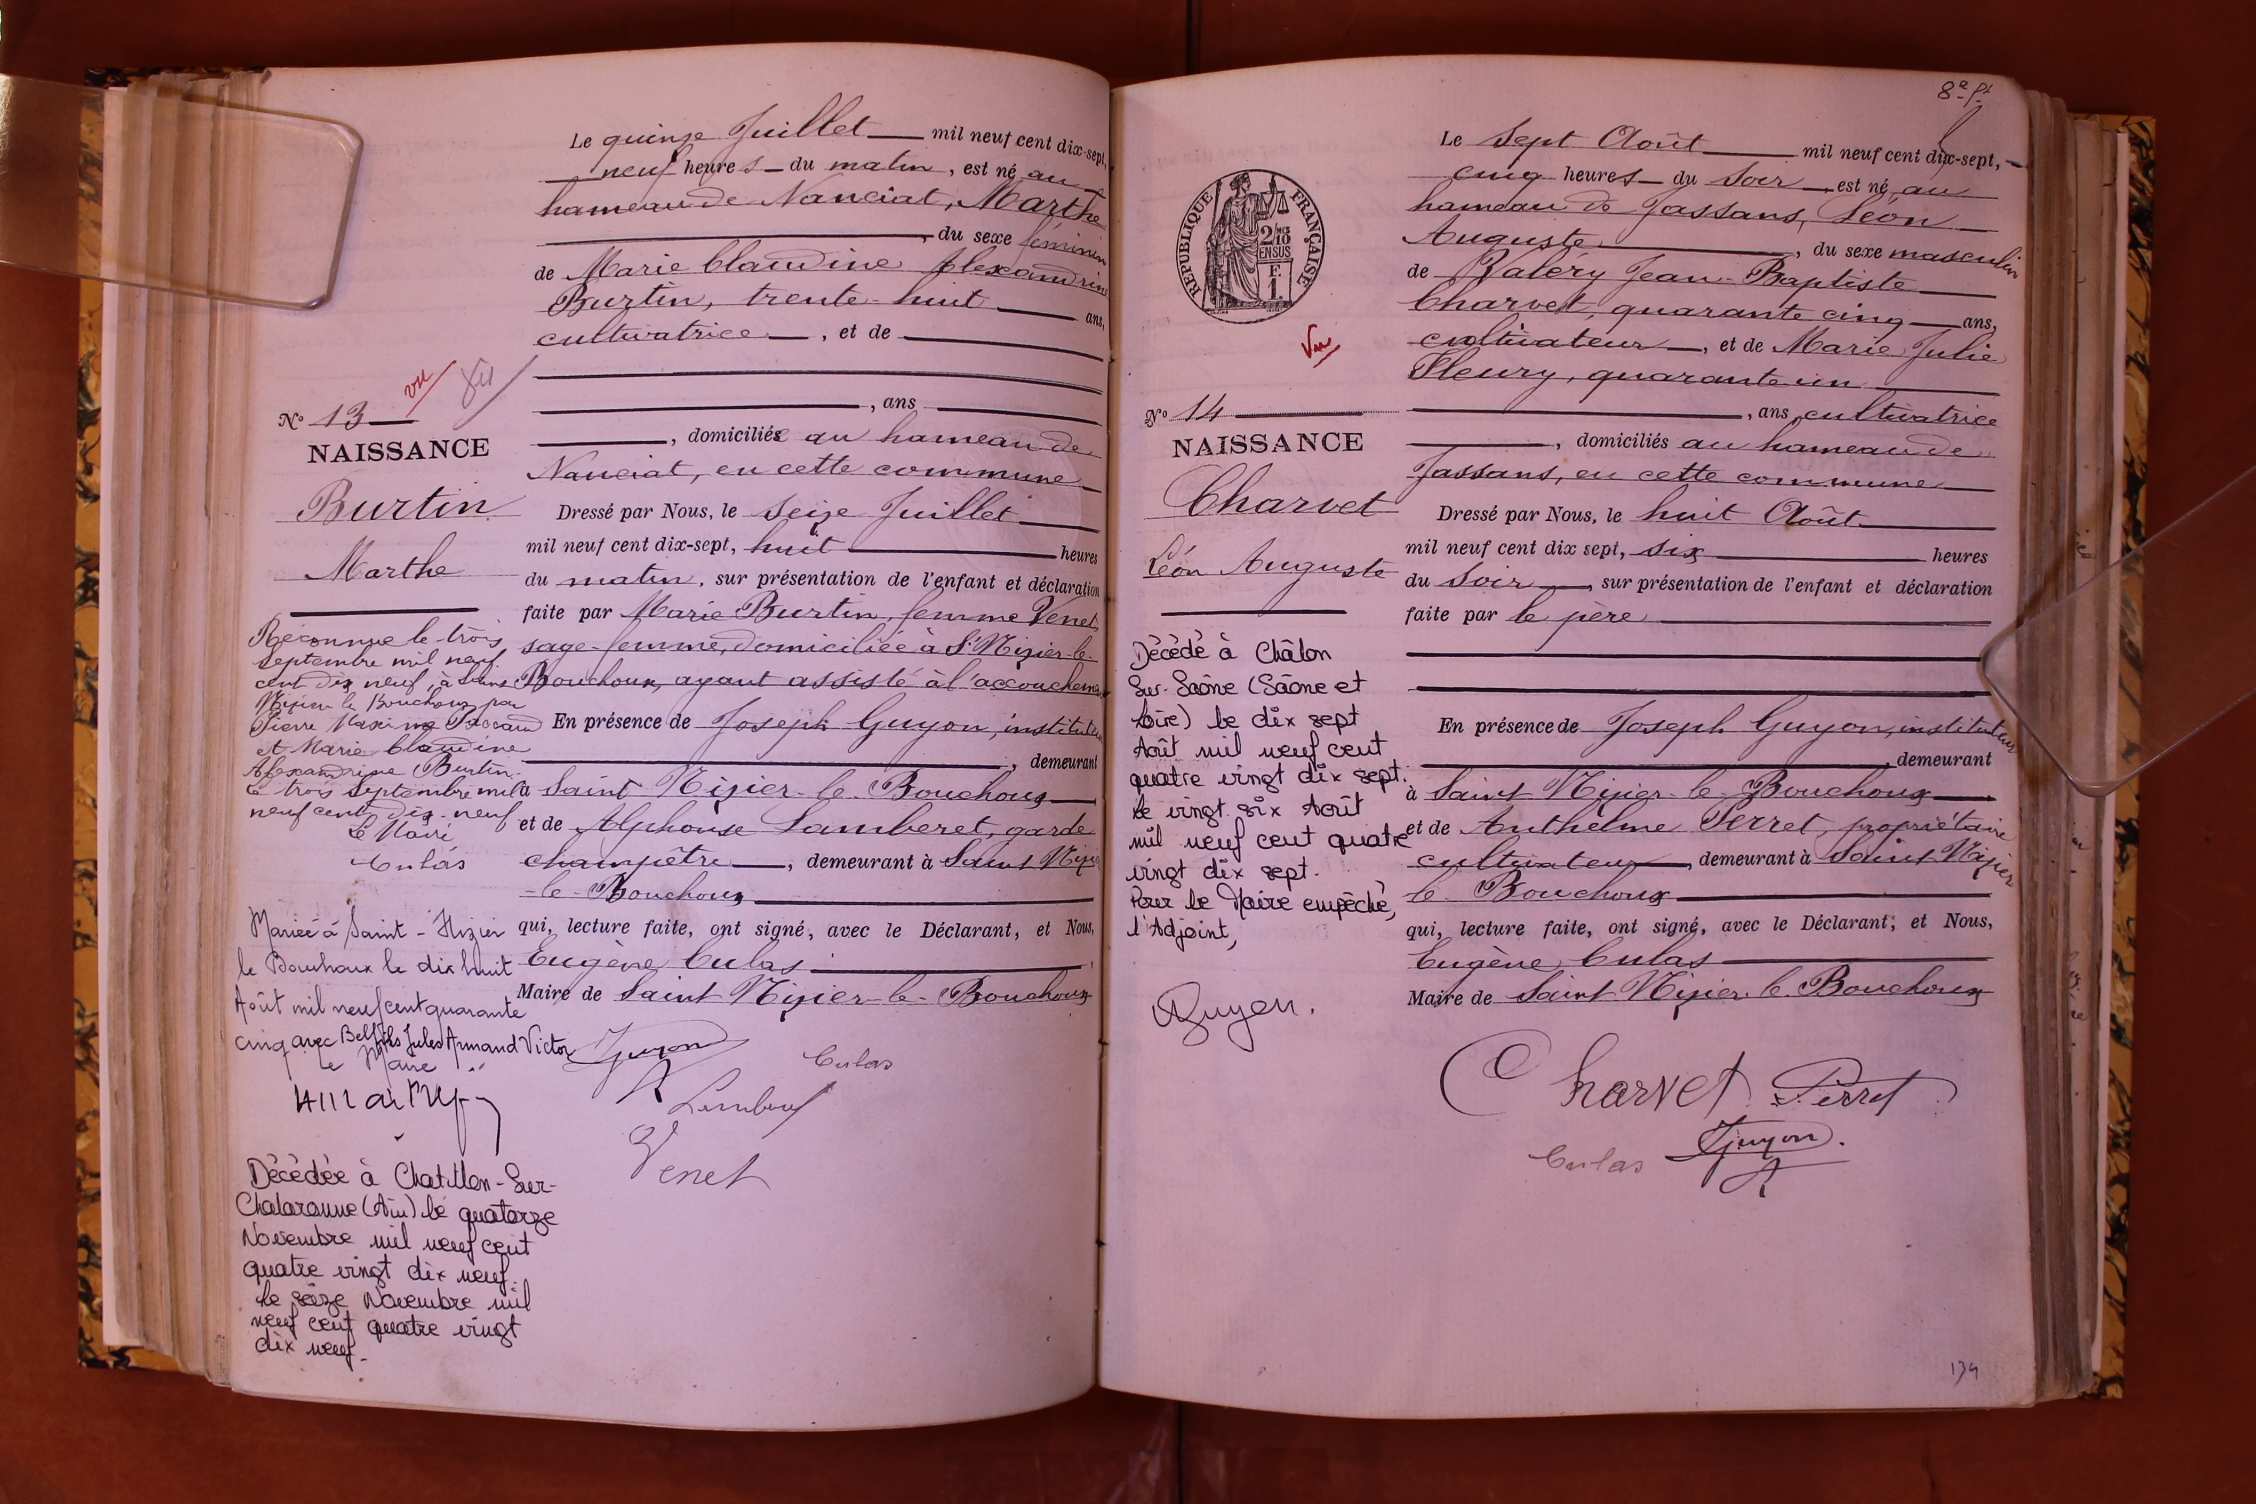 Le quinze Juillet mil neuf cent dix-sept,
neuf heures du matin, est né au
hameau de Nanciat, Marthe
, du sexe féminin
de Marie Claudine Alexandrine
Burtin, trente-huit ans,
cultivatrice, et de
, ans
, domiciliée au hameau de
Nanciat, en cette commune
Dressé par Nous, le seize Juillet
mil neuf cent dix-sept, huit heures
du matin, sur présentation de l'enfant et déclaration
faite par Marie Burtin, femme Venet
sage-femme, domiciliée à St Nizier-le-
Bouchoux, ayant assisté à l'accouchement
En présence de Joseph Guyon, instituteur
, demeurant
à Saint Nizier-le-Bouchoux
et de Alphonse Lamberet, garde
champêtre, demeurant à Saint Nizier
-le-Bouchoux
qui, lecture faite, ont signé, avec le Déclarant, et Nous,
Eugène Culas
Maire de Saint Nizier-le-Bouchoux
Guyon
Culas
Lamberet
Venet
vu
N° 13
NAISSANCE
Burtin
Marthe
Reconnue le trois
septembre mil neuf
cent dix neuf, à Saint
Nizier le Bouchoux par
Pierre Maxime
et Marie Claudine
Alexandrine Burtin.
Le trois septembre mil
neuf cent dix-neuf
Le Maire
Culas
Mariée à Saint-Nizier
le Bouchoux le dix huit
Août mil neuf cent quarante
cinq avec Jules Armand Victor
Le Maire
Décédée à Chatillon-Sur-
Chalaronne (Ain) le quatorze
Novembre mil neuf cent
quatre vingt dix neuf.
le seize Novembre mil
neuf cent quatre vingt
dix neuf.
8e ft
Le sept Août mil neuf cent dix-sept,
cinq heures du soir est né au
hameau de Jassans, Léon
Auguste, du sexe masculin
de Valéry Jean-Baptiste
Charvet, quarante cinq ans,
cultivateur, et de Marie Julie
Fleury, quarante un
, ans cultivatrice
, domiciliés au hameau de
Jassans, en cette commune
Dressé par Nous, le huit Août
mil neuf cent dix sept, six heures
du soir, sur présentation de l'enfant et déclaration
faite par le père
En présence de Joseph Guyon, instituteur
, demeurant
à Saint Nizier-le-Bouchoux
et de Anthelme Perret, propriétaire
cultivateur, demeurant à Saint Nizier
le Bouchoux
qui, lecture faite, ont signé, avec le Déclarant, et Nous,
Eugène Culas
Maire de Saint Nizier-le-Bouchoux
Charvet Perret
Culas Guyon
REPUBLIQUE FRANÇAISE
2/10 EN SUS
F. 1.
Vu
N° 14
NAISSANCE
Charvet
Léon Auguste
Décédé à Châlon
Sur-Saône (Saône et
Loire) le dix sept
Août mil neuf cent
quatre vingt dix sept.
le vingt six Août
mil neuf cent quatre
vingt dix sept.
Pour le Maire empêché,
l'Adjoint,
Guyen.
134